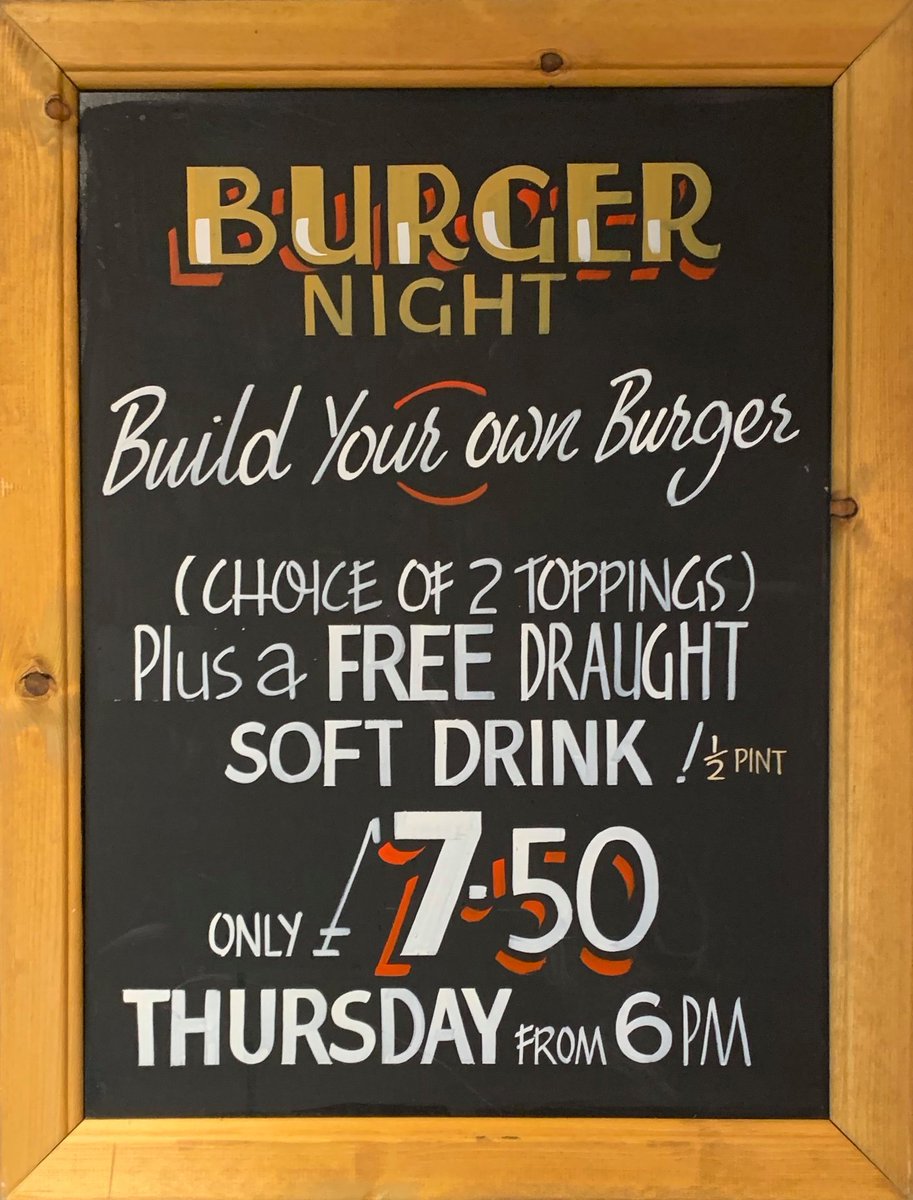 BURGER
NIGHT
Build Your own Burger
(CHOICE OF 2 TOPPINGS)
Plus a FREE DRAUGHT
SOFT DRINK ! ½ PINT
ONLY £7.50
THURSDAY FROM 6 PM